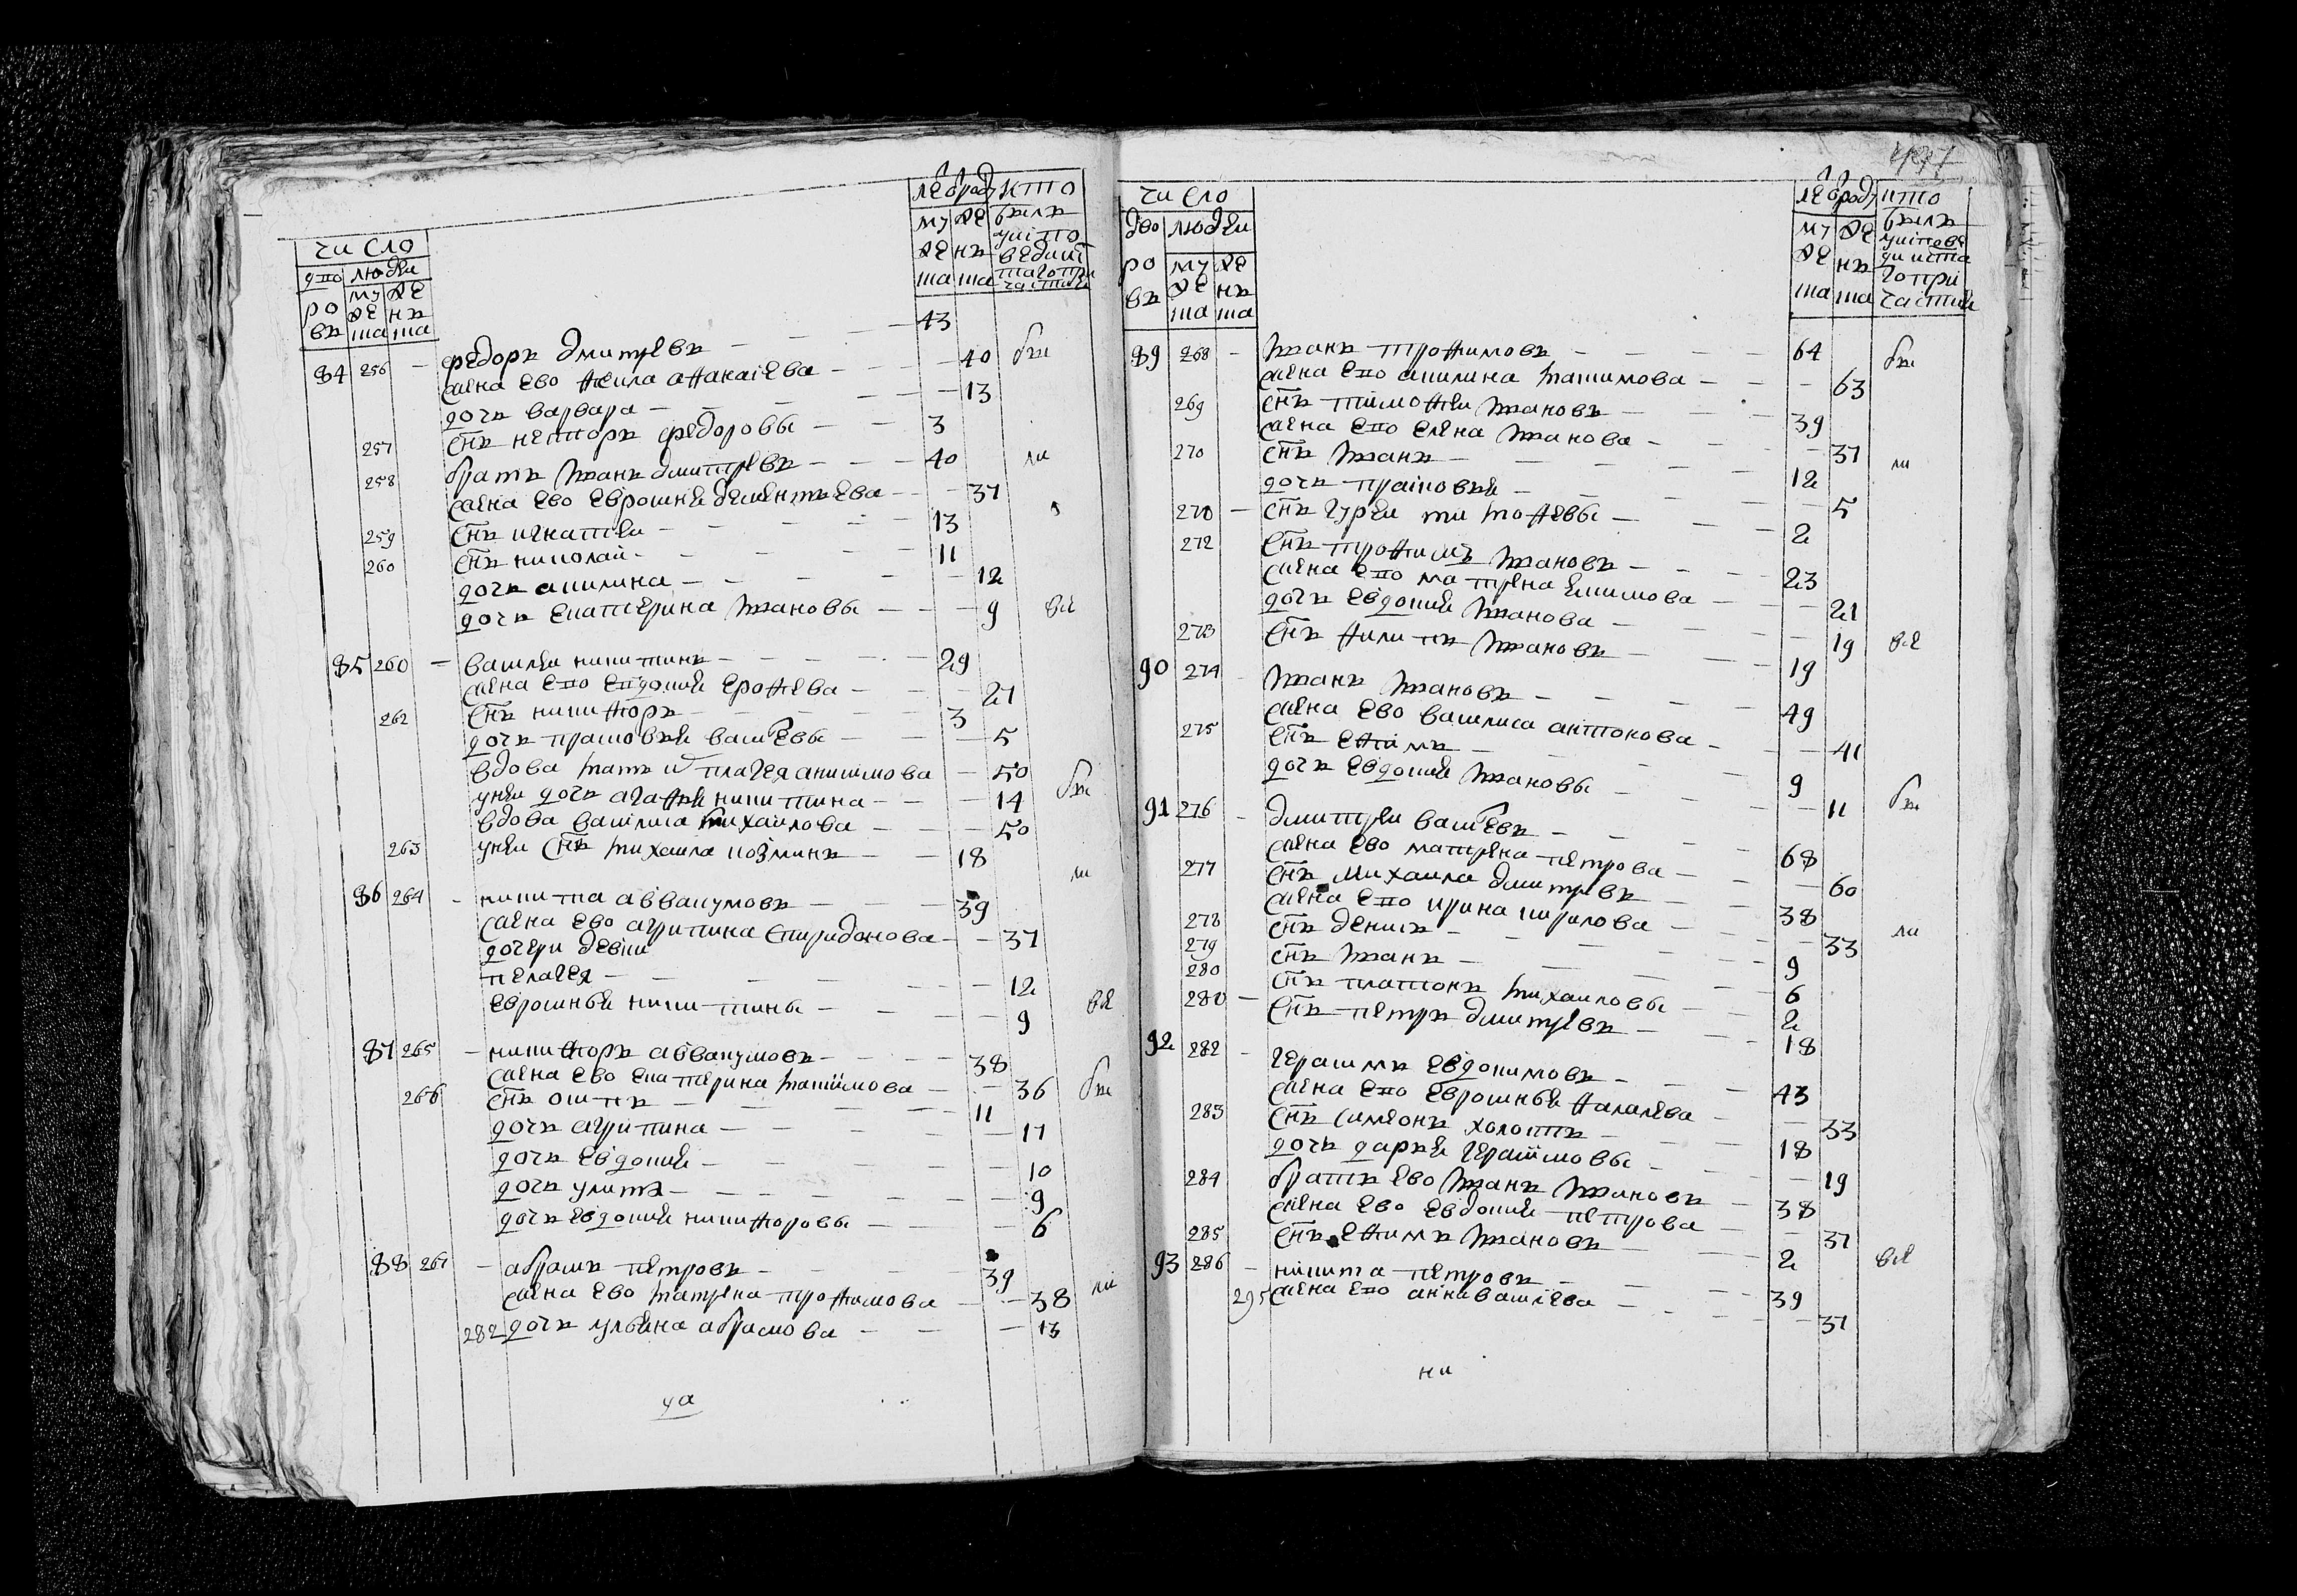 число
дво люди
ро му же
въ жe нъ
ска ска
лѣ от роду кто
были
у испо
ведии
84 256 – федоръ дмитревъ – 43
жена ево фекла афанасева – 40 бы
дочь варвара – 13
257 снъ несторъ федоровы – 3
258 братъ иванъ дмитревъ – 40 ли
жена ево евросинья дементьева – 37
259 снъ игнатеи – 13
260 снъ николаи – 11
дочь акилина – 12
дочь екатерина ивановы – 9 всѣ
85 260 – василеи никитинъ – 29
жена ево евдокия ерофѣева – 21
262 снъ никифоръ – 3
дочь прасковия васиевы – 5
вдова мать и пелагея анисимова – 50 бы
у неи дочь агафия никитина – 14
вдова василиса михаилова – 50
263 у неи снъ михаила козминъ – 18
ли
86 264 – никита аввакумовъ – 39
жена ево агрипина спиридонова – 37
дочери девки
пелагея – 12
евросинья никитины – 9 всѣ
87 265 – никифоръ аввакумовъ – 38
жена ево екатерина максимова – 36 бы
266 снъ осипъ – 11
дочь агрипина – 17
дочь евдокия – 10
дочь улита – 9
дочь евдокия никифоровы – 6
88 267 – абрамъ петровъ – 39
жена ево матрена трофимова – 38 ли
282 дочь ульяна абрамова – 13
ча
число
дво люди
ро му же
въ же нъ
ска ска
лѣ от роду кто
были
89 268 – иванъ трофимовъ – 64 бы
жена ево акилина максимова – 63
269 снъ тимофеи ивановъ – 39
жена ево елена иванова – 37
270 снъ иванъ – 12 ли
дочь прасковия – 5
270 – снъ гуреи тимофѣевы – 2
272 снъ трофимъ ивановъ – 23
жена ево матрена екимова – 21
дочь евдокия иванова – 19 всѣ
273 снъ филипъ ивановъ – 19
90 274 иванъ ивановъ – 49
жена ево василиса антонова – 41
275 снъ ефимъ – 9
дочь евдокия ивановы – 11 бы
91 276 – дмитреи васиевъ – 68
жена ево матрена петрова – 60
277 снъ михаила дмитревъ – 38
жена ево ирина кирилова – 33 ли
278 снъ денисъ – 9
279 снъ иванъ – 6
280 снъ платонъ михаиловы – 2
280 – снъ петръ дмитревъ – 18
92 282 – герасимъ евдокимовъ – 43
жена ево евросинья фалалѣева – 33
283 снъ симеонъ холостъ – 18
дочь дарья герасимовы – 19
284 братъ ево иванъ ивановъ – 38
жена ево евдокия петрова – 37
285 снъ ефимъ ивановъ – 2 всѣ
93 286 – никита петровъ – 39
295 жена ево анна васиева – 37
ни